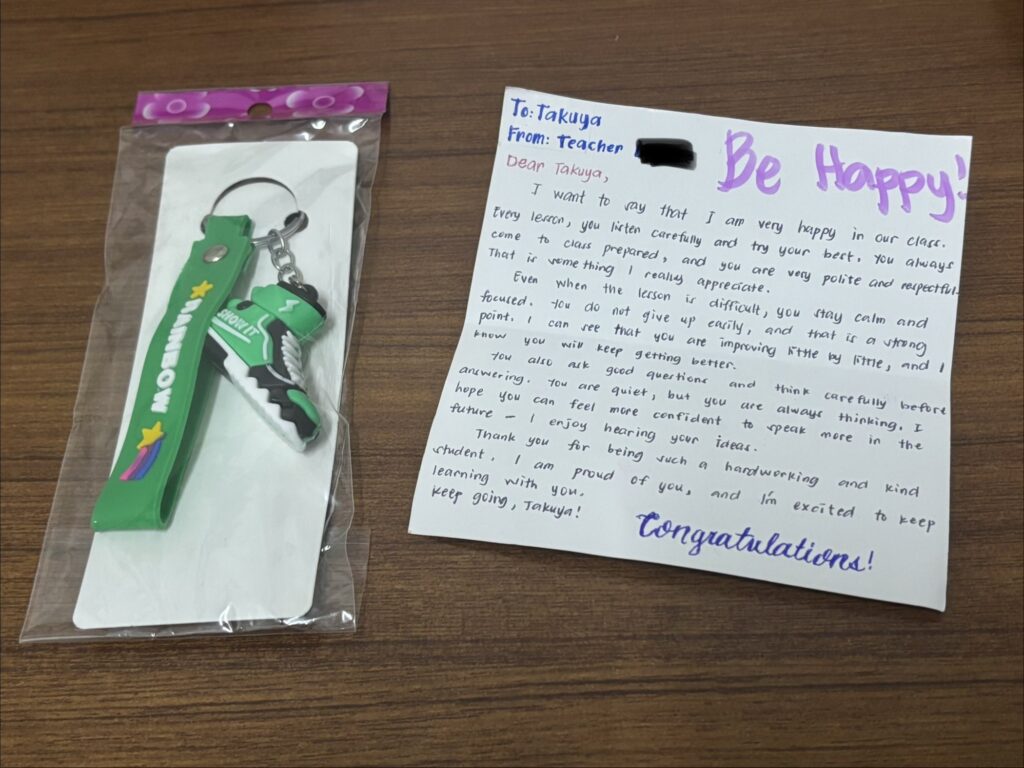 RAINBOW
SHOW IT
To: Takuya
From: Teacher
Be Happy!
Dear Takuya,
I want to say that I am very happy in our class.
Every lesson, you listen carefully and try your best. You always
come to class prepared, and you are very polite and respectful.
That is something I really appreciate.
Even when the lesson is difficult, you stay calm and
focused. You do not give up easily, and that is a strong
point. I can see that you are improving little by little, and I
know you will keep getting better.
You also ask good questions and think carefully before
answering. You are quiet, but you are always thinking. I
hope you can feel more confident to speak more in the
future – I enjoy hearing your ideas.
Thank you for being such a hardworking and kind
student. I am proud of you, and I'm excited to keep
learning with you.
Keep going, Takuya!
Congratulations!